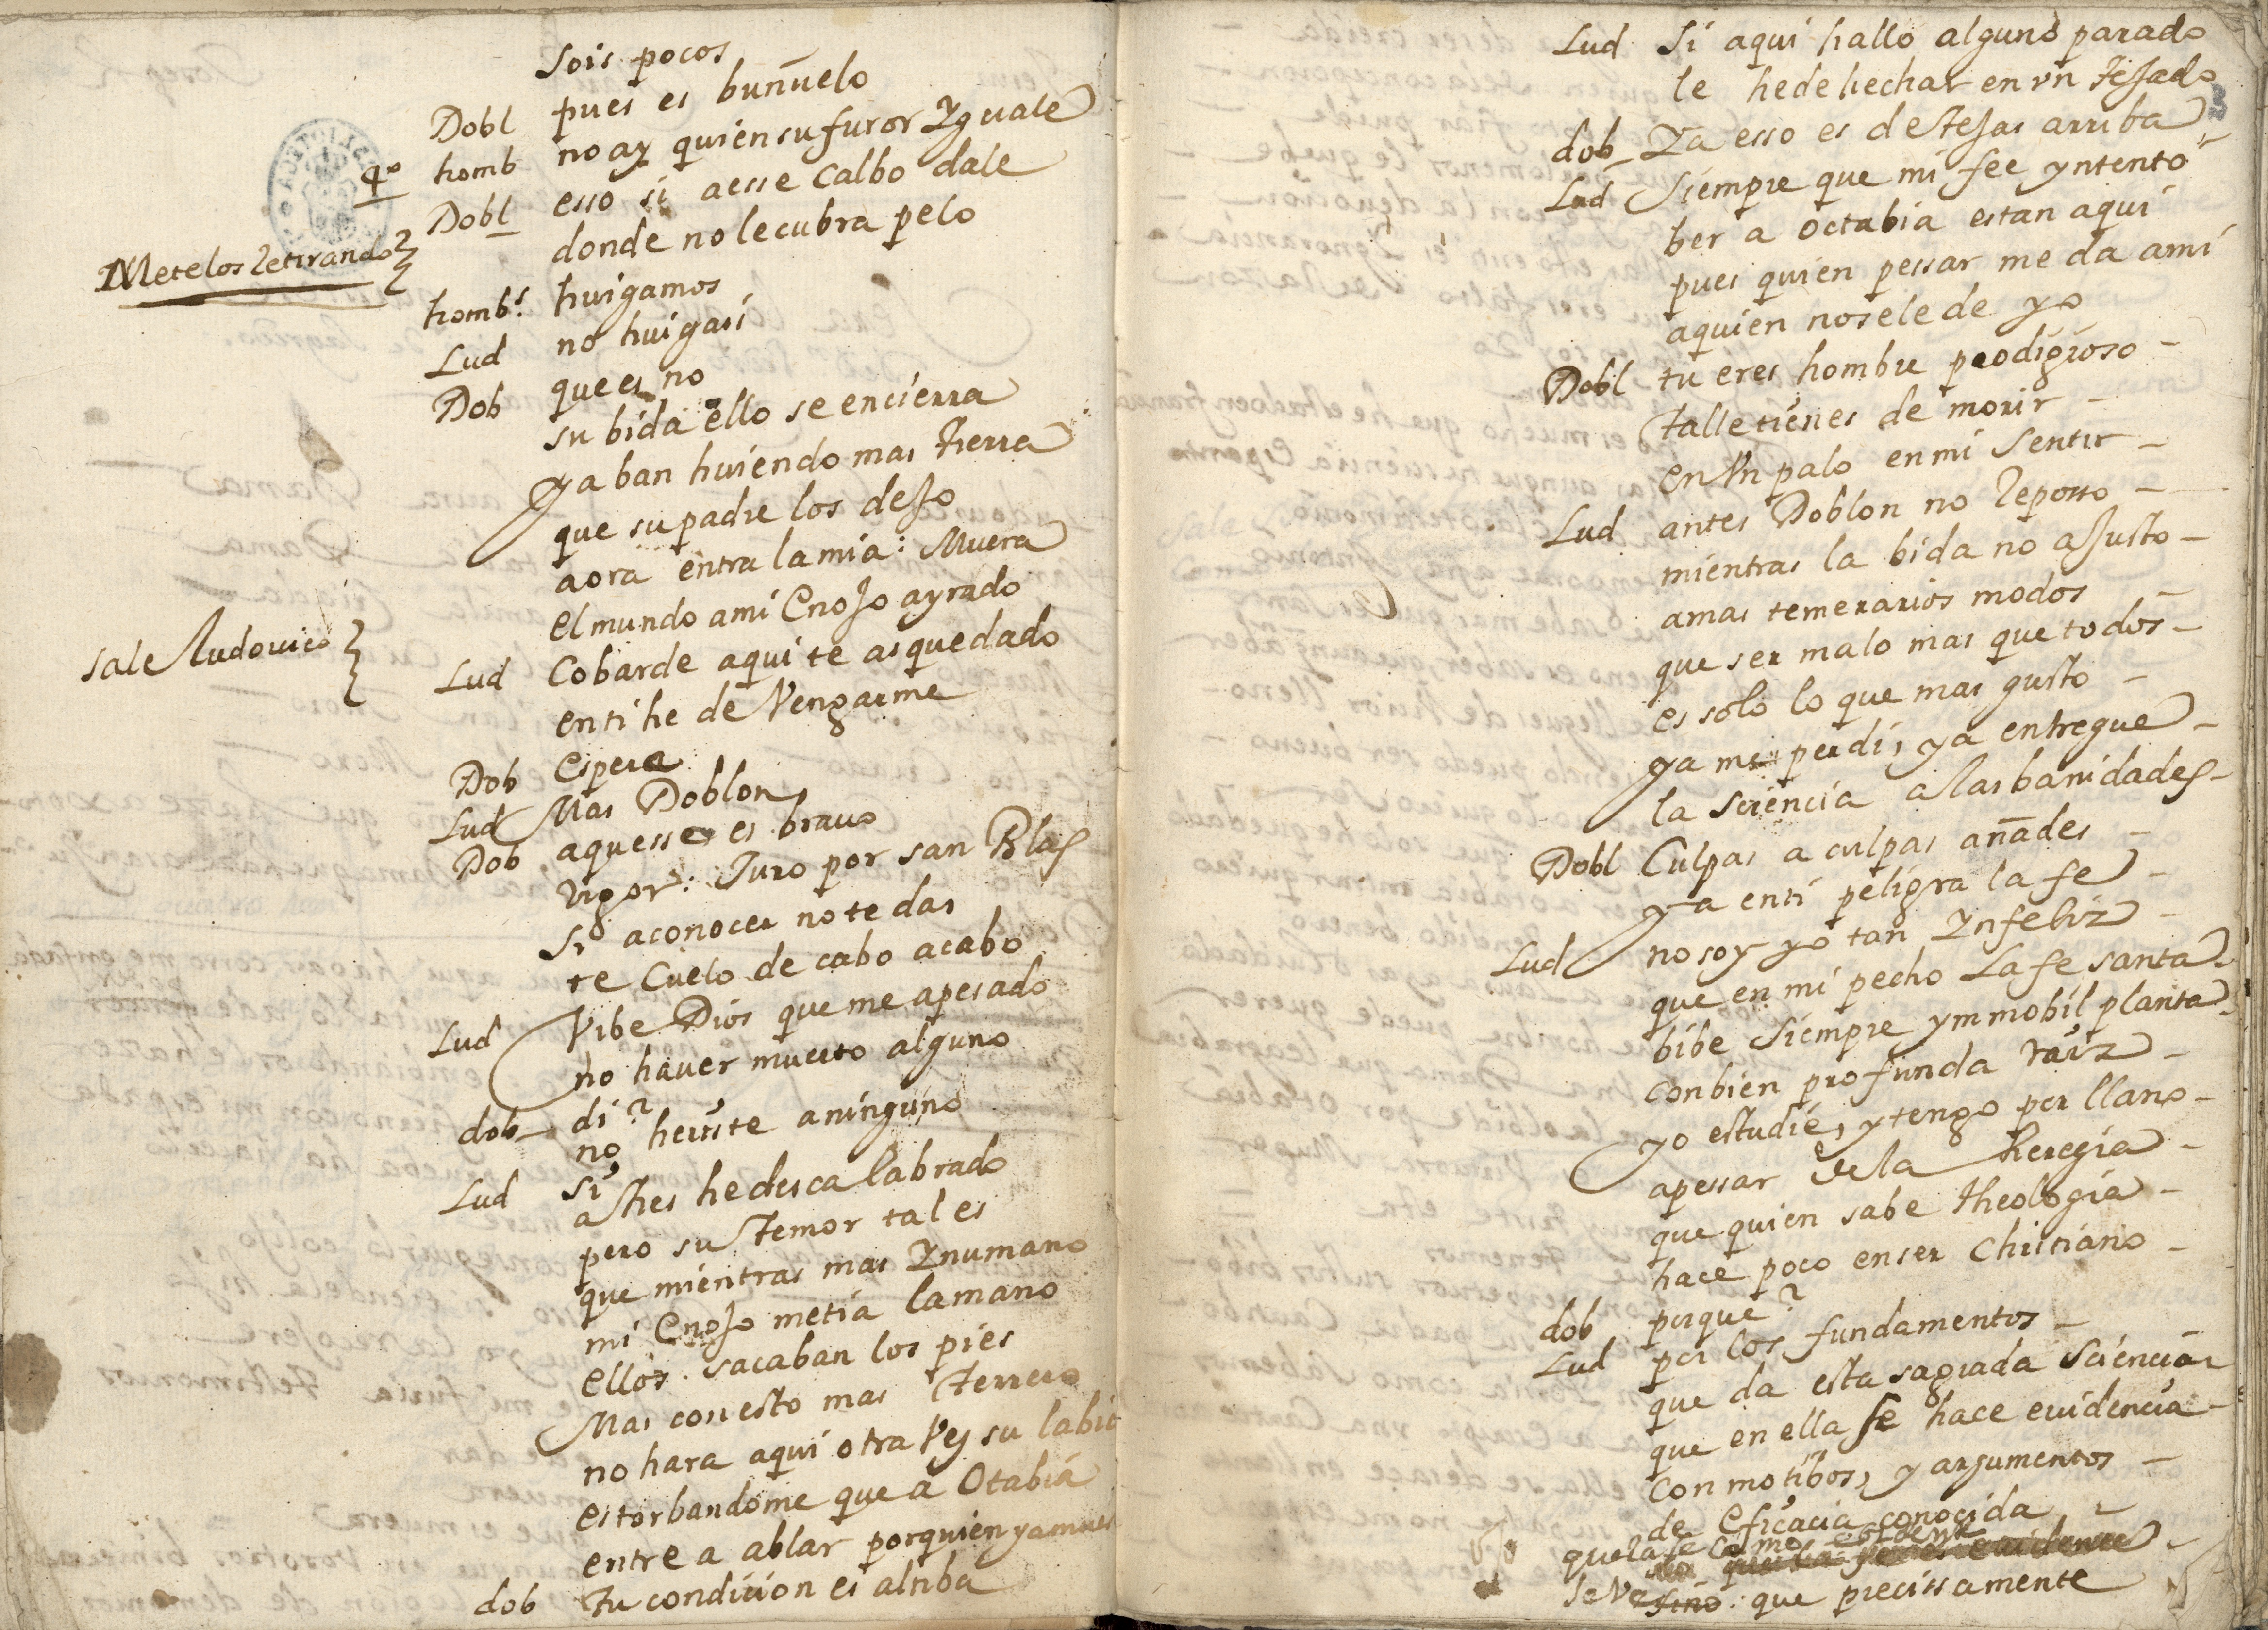 sois pocos
Dobl pues es buñuelo
4º homb no ay quien su furor Yguale
Dobl esso si a esse Calbo dale
donde no le cubra pelo
Metelos retirando
homb.s huigamos
Lud no huigais
Dob que es no
su bida ello se encierra
ya ban huiendo mas tierra
que su padre los dejo
aora entra la mia: Muera
el mundo a mi Enojo ayrado
sale Ludouico
Lud Cobarde aqui te as quedado
en ti he de Vengarme
Dob espera
Lud Mas Doblon
Dob aquesse es brauo
Vigor: Juro por san Blas
si a conocer no te das
te Cuelo de cabo a cabo
Lud Vibe Dios que me a pesado
no hauer muerto alguno
dob di?
no heriste a ninguno
Lud si
a tres he descalabrado
pero su temor tal es
que mientras mas Ynumano
mi Enojo metia la mano
ellos sacaban los pies
Mas con esto mas terrero
no hara aqui otra Vez su labio
estorbandome que a Otabia
entre a ablar por quien ya
dob tu condicion es altiba
Lud Si aqui hallo alguno parado
le he de hechar en vn tejado
dob Ya esso es de tejas arriba
Lud Siempre que mi fee yntento
ber a Octabia estan aqui
pues quien pessar me da a mi
a quien no se le de yo
Dobl tu eres hombre prodigioso
talle tienes de morir
en Vn palo en mi Sentir
Lud antes Doblon no reposso
mientras la bida no ajusto
a mas temerarios modos
que ser malo mas que todos
es solo lo que mas gusto
ya me perdi, ya entregue
la sciencia a las banidades
Dobl Culpas a culpas añades
ya en ti peligra la fe
Lud no soy yo tan Ynfeliz
que en mi pecho La fe santa
bibe Siempre ymmobil planta
con bien profunda raiz
yo estudie, y tengo por llano
a pessar de la heregia
que quien sabe theologia
hace poco en ser Christiano
dob porque?
Lud por los fundamentos
que da esta sagrada Sciencia
que en ella se hace euidencia
con motibos, y argumentos
de eficacia conocida
que la fe como
que la fe es euidente
se Ve sino: que precissamente